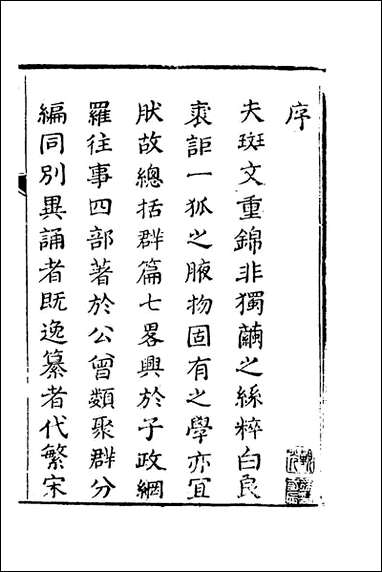 序
夫斑文重錦非獨繭之絲粹白良
裘詎一狐之腋物固有之學亦宜
肰故緫括群篇七畧興於子政網
羅往事四部著於公曾類聚群分
編同別異誦者既逸纂者代繁宋